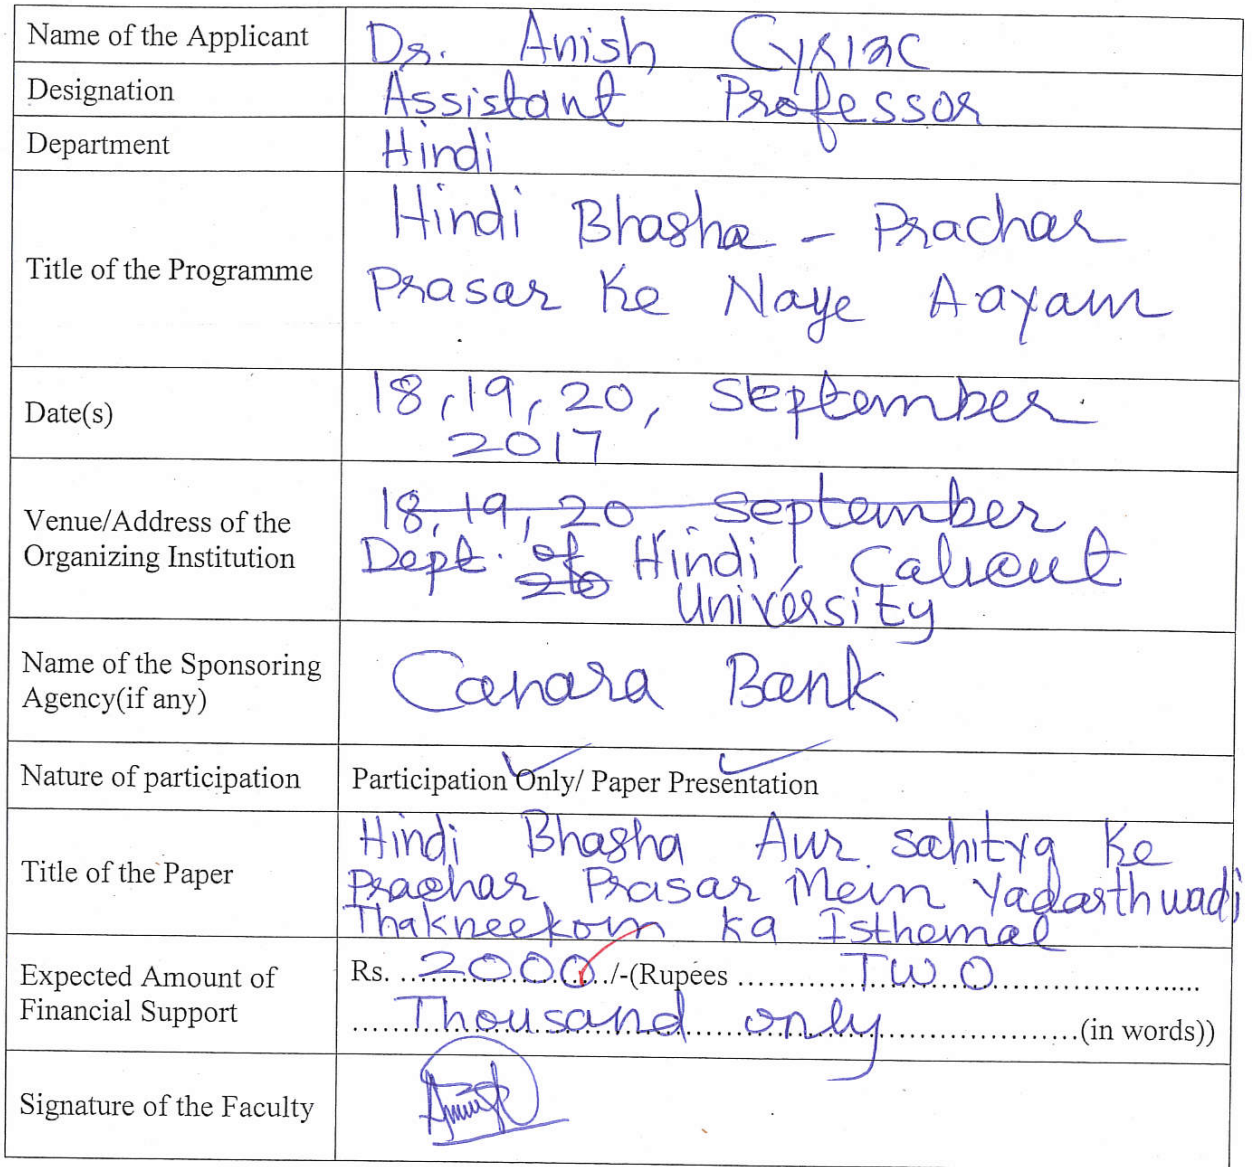 Name of the Applicant Dr. Anish Cyriac
Designation Assistant Professor
Department Hindi
Title of the Programme Hindi Bhasha - Prachar
Prasar Ke Naye Aayam
Date(s) 18, 19, 20, September
2017
Venue/Address of the
Organizing Institution
18, 19, 20 September
Dept. of Hindi, Calicut
20 University
Name of the Sponsoring
Agency(if any)
Canara Bank
Nature of participation Participation Only/ Paper Presentation
Title of the Paper
Hindi Bhasha Aur Sahitya Ke
Prachar Prasar Mein Yadarthwadi
Thakneekom ka Isthemal
Expected Amount of
Financial Support
Rs. ...2000.../-(Rupees ............Two............
......Thousand only..................(in words))
Signature of the Faculty